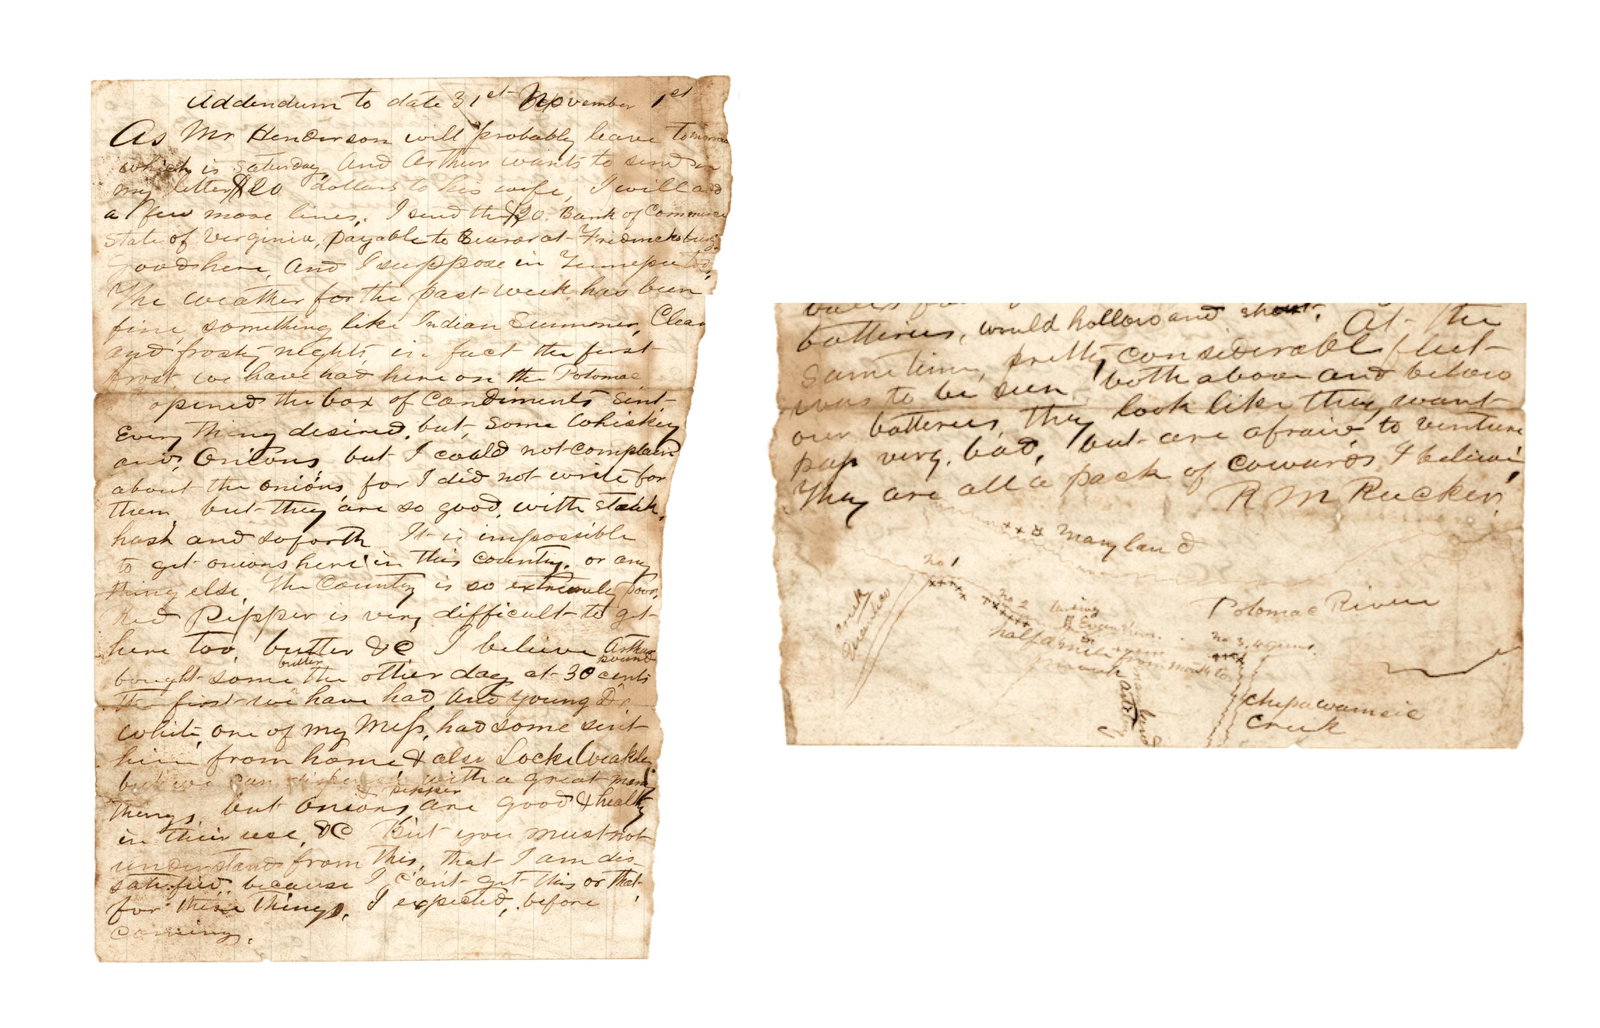 Addendum to date 31st November 1st
As Mr Henderson will probably leave
which is Saturday, and Arthur wants to send in
my letter $20 dollars to his wife, I will add
a few more lines. I send the $20. Bank of Commerce
State of Virginia, payable to Bearer at Fredericksburg
Good here, and I suppose in
The weather for the past week has been
fine, something like Indian Summer, Clear
and frosty nights, in fact the first
frost we have had here on the Potomac
opened the box of Condiments sent
Every thing desired, but, some Whiskey
and Onions, but I could not complain
about the onions, for I did not write for
them, but they are so good, with steak,
hash and soforth It is impossible
to get onions here in this country, or any
thing else, The Country is so extremely poor,
Red Pepper is very difficult to get
here too, butter &C I believe Arthur
bought some butter the other day at 30 cents pound
the first we have had, and young Dr
White, one of my Mess, had some sent
him from home & also Locke Weakley
but we can dispense with a great many
things, but onions & pepper are good & healthy
in their use, &C But you must not
understand from this, that I am dis-
satisfied, because I can't get this or that
for these things, I expected, before
coming.
batteries, would hollow and shout. At the
sametime, pretty considerable fleet
was to be seen both above and below
our batteries, they look like they want
pass very bad, but are afraid to venture
They are all a pack of cowards I believe
R M Rucker,
Maryland
No 1
No 2
Potomac River
No 3, 4 guns
half a mile from mouth to
mouth
Chepawamsic
Creek